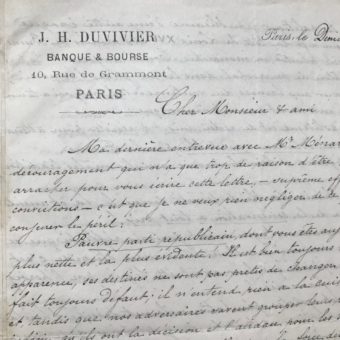 J. H. DUVIVIER
BANQUE & BOURSE
10, Rue de Grammont
PARIS
Paris, le Dim
Cher Monsieur & ami
Ma dernière entrevue avec Mr. Ménar
découragement qui n'a que trop de raison d'être
arracher pour vous écrire cette lettre, – suprême ef
convictions – c'est que je ne veux rien négliger de
conjurer le péril;
Pauvre parti républicain, dont vous êtes au
plus nette et la plus évidente! Il est bien toujours
apparence, ses destinés ne sont pas prêtes de changer
fait toujours défaut; il n'entend rien à la cui
et, tandis que nos adversaires savent grouper leurs
ils ont la décision et l'audace pour les